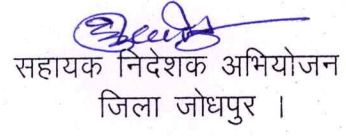 सहायक निदेशक अभियोजन
जिला जोधपुर ।